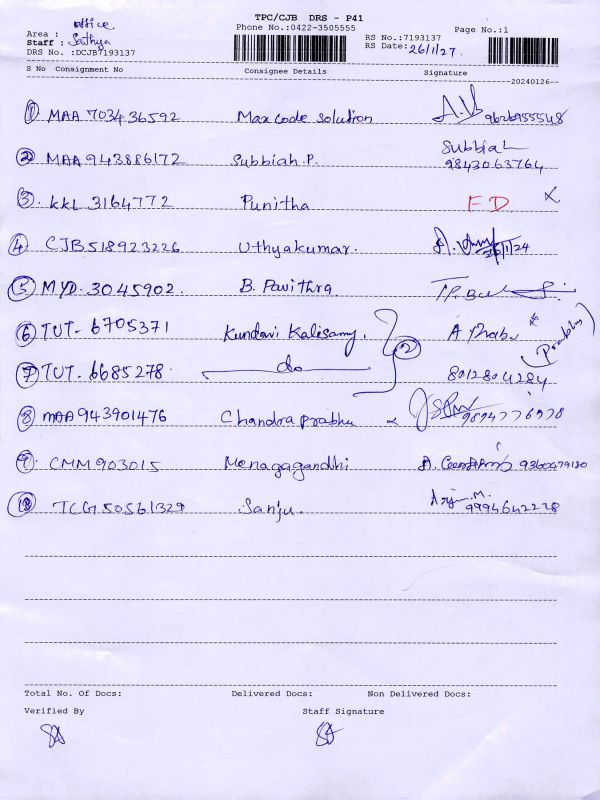 TPC/CJB DRS - P41
office
Area :
Phone No.:0422-3505555
Page No.:1
Staff : Sathya
RS No.:7193137
DRS No. :DCJB7193137
RS Date: 26/1/27.
S No Consignment No Consignee Details Signature
20240126
1 MAA 703436592 Maxcode Solution 9626955548
2 MAA 943886172 Subbiah.P. Subbiah 9843063764
3. KKL 3164772 Punitha FD X
4 CJB518923226 Uthyakumar. 26/1/24
5 MYD.3045902. B. Pavithra.
6 TUT. 6705371 Kundavi Kalisamy. 2 A Prabu (Prabhu)
7 TUT. 6685278. do 8012804284
8 MAA943901476 Chandra prabhu
9. CMM903015 Menagagandhi 9360479180
10 TCG50561329 Sanju. Arjun.M. 9994642228
Total No. Of Docs: Delivered Docs: Non Delivered Docs:
Verified By Staff Signature